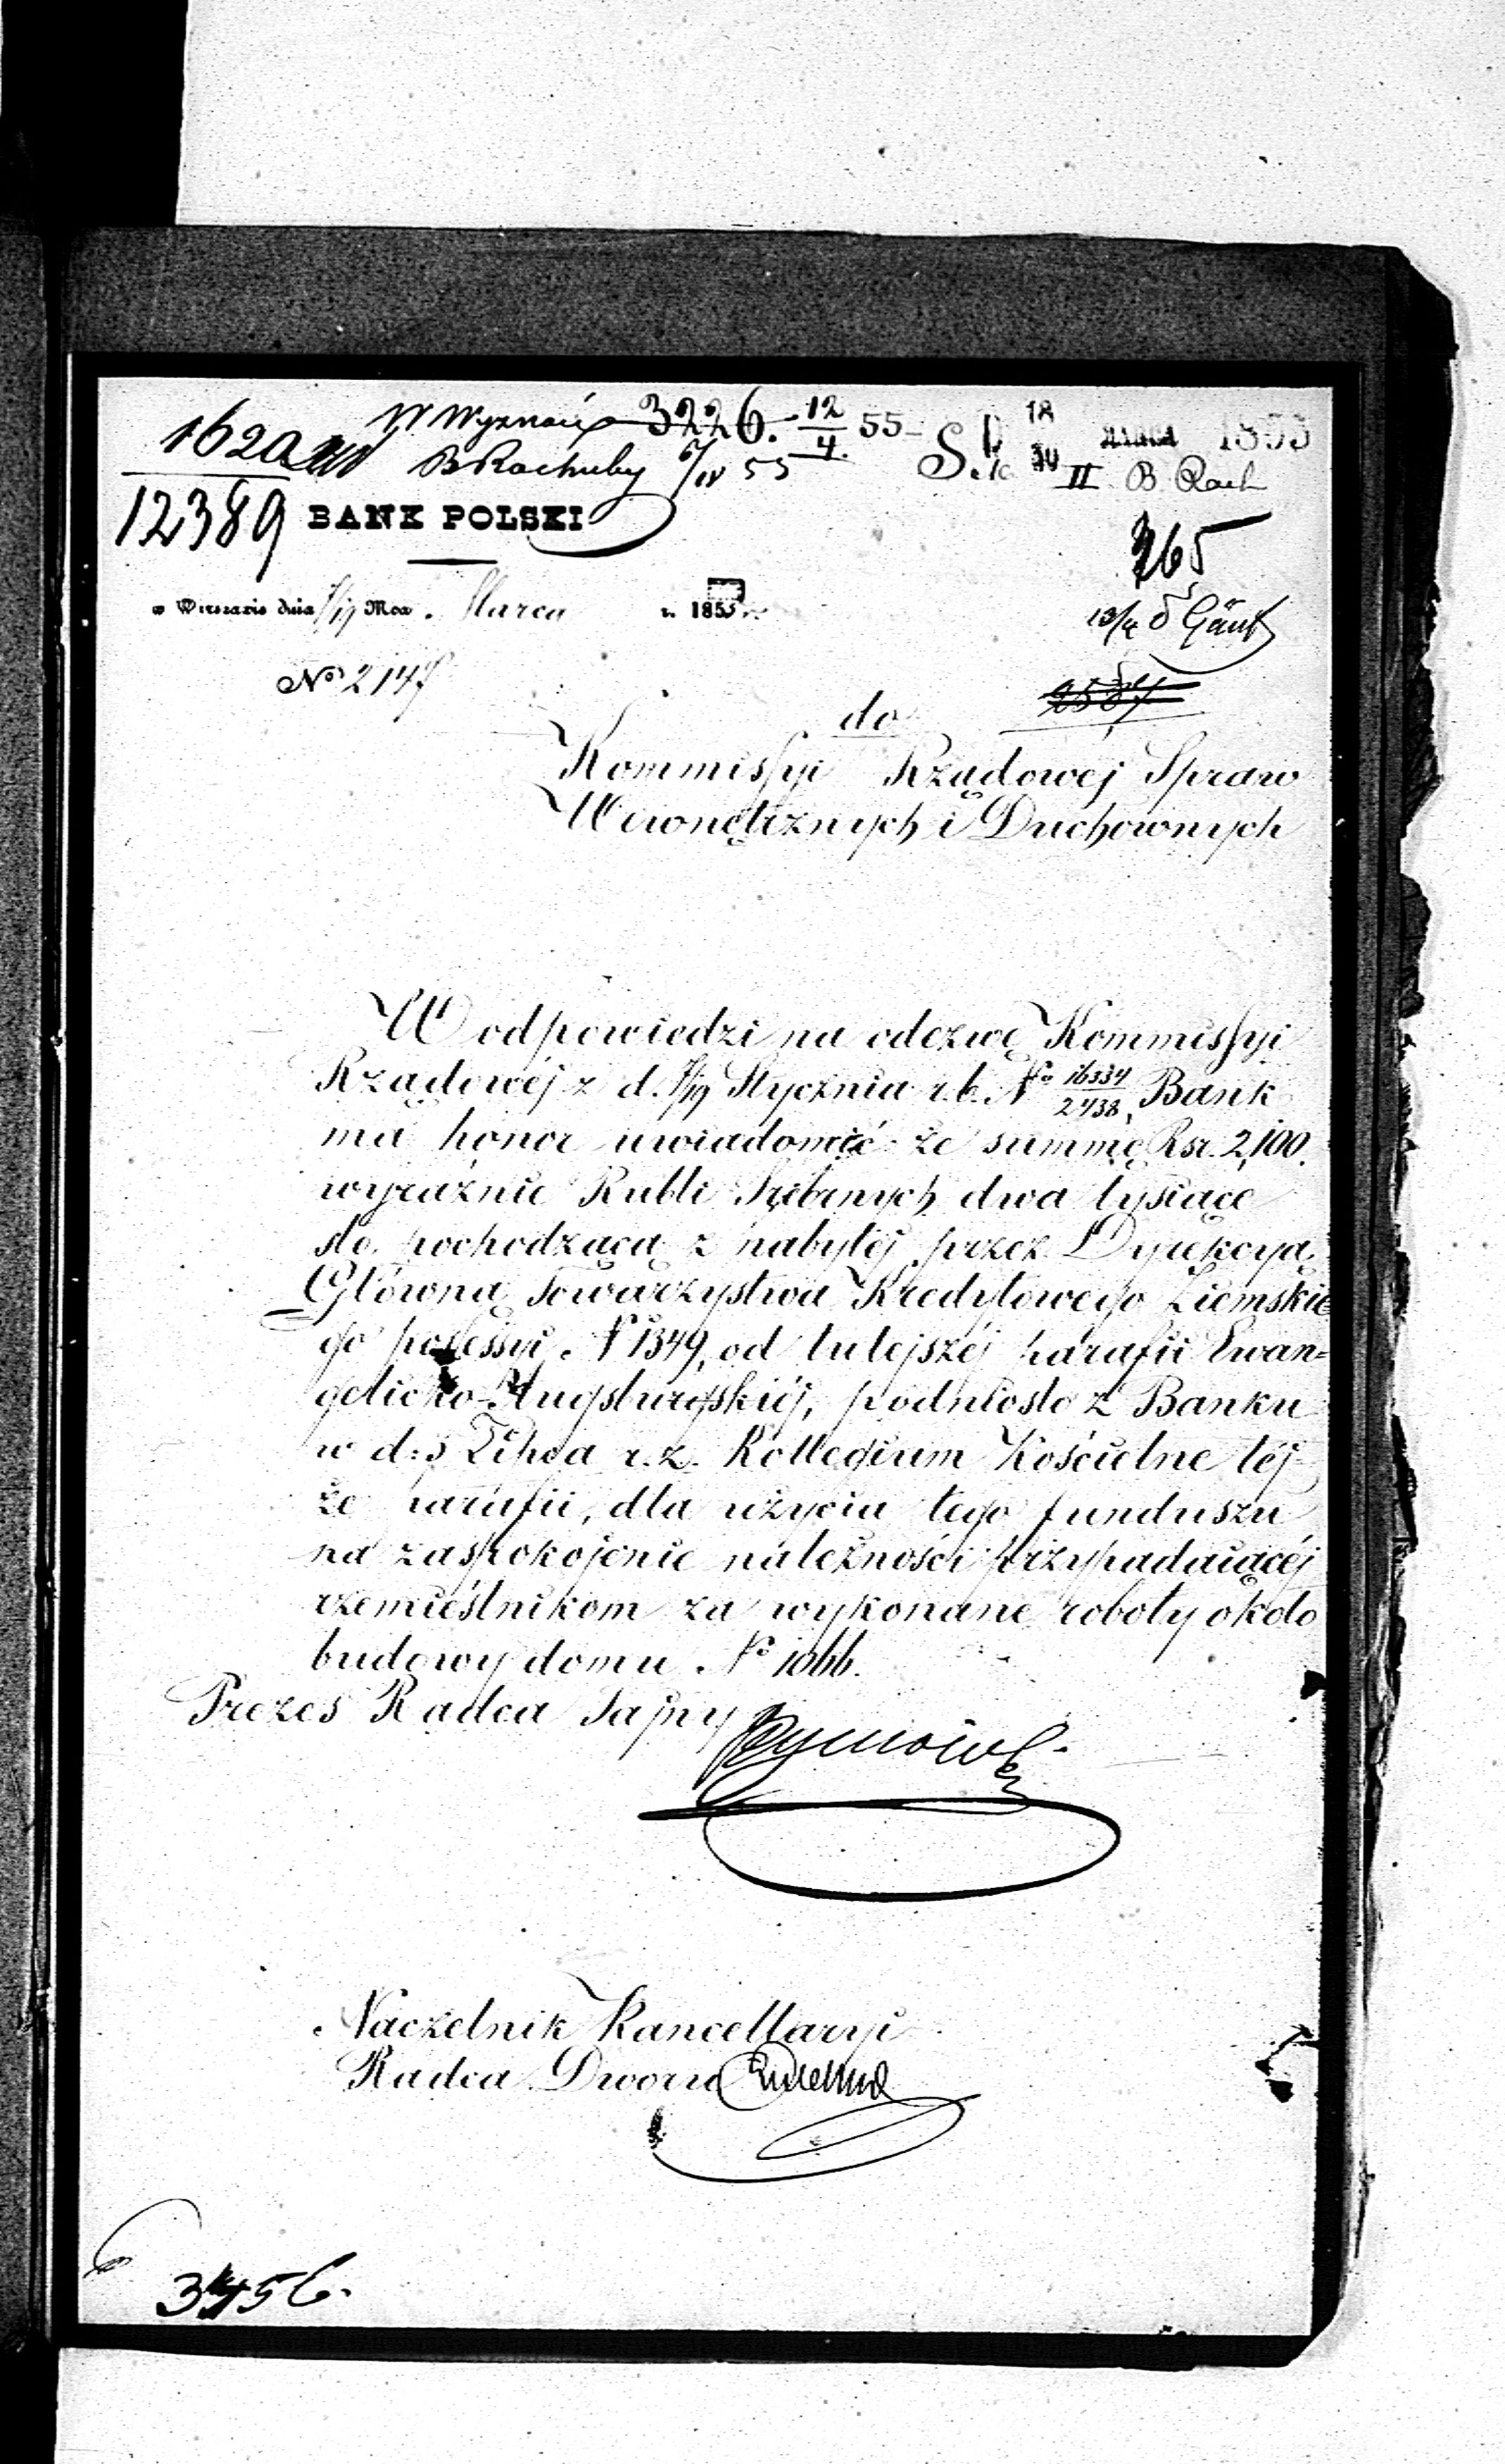 1620
W Wyznań 3226. 12/4. 55
B Rachuby 6/IV 55
S. 18/30 MARCA 1855
II B. Rach
12389 BANK POLSKI
265
w Warszawie dnia 7/19 Mca Marca r. 1855
13/4
No 2147
2587
do
Kommissyi Rządowej Spraw
Wewnętrznych i Duchownych
W odpowiedzi na odezwę Kommissyi
Rządowéj z d. 7/19 Stycznia r.b. No 16334/2438, Bank
ma honor uwiadomić że summę Rsr. 2,100.
wyraźnie Rubli Srebrnych dwa tysiące
sto, pochodzącą z nabytéj przez Dyrekcyą
Główną Towarzystwa Kredytowego Ziemskie
go possessyi N 1349, od tutejszéj parafii Ewan=
gelicko-Augsburgskiéj, podniosło z Banku
w d: 3 Lipca r.z. Kollegium Kościelne téj-
że parafii, dla użycia tego funduszu
na zaspokojenie należności przypadaiącéj
rzemieślnikom za wykonane roboty około
budowy domu No 1066.
Prezes Radca Tajny
Naczelnik Kancellaryi
Radca Dworu
3456.